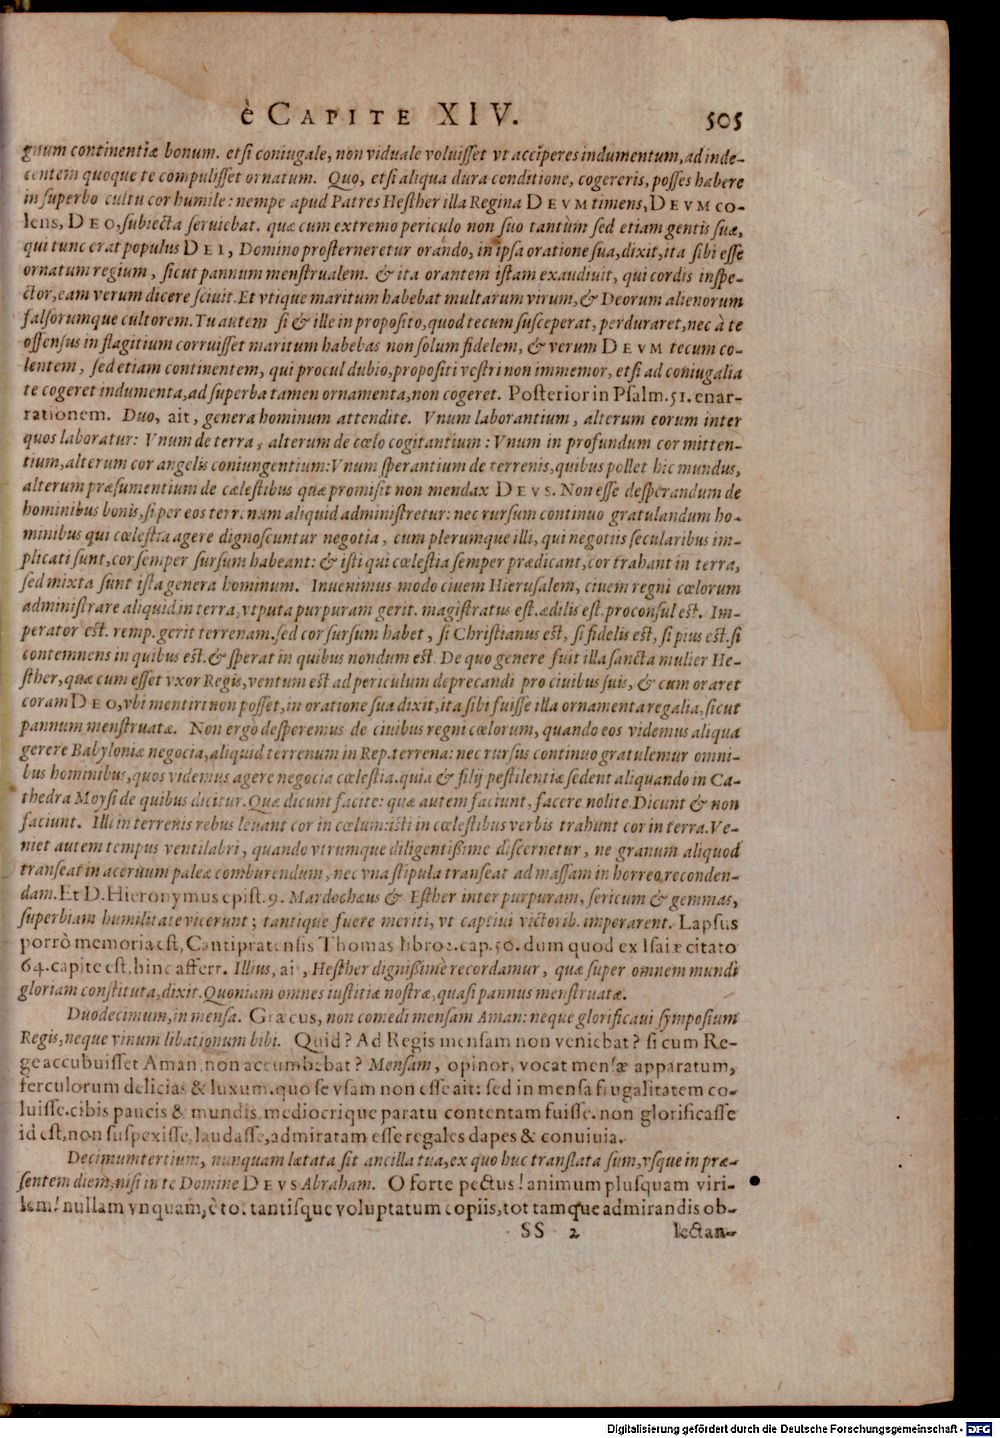 è CAPITE XIV. 505
gnum continentiæ bonum. etsi coniugale, non viduale voluisset vt acciperes indumentum, ad inde-
centem quoque te compulisset ornatum. Quo, etsi aliqua dura conditione, cogereris, posses habere
in superbo cultu cor humile: nempe apud Patres Hesther illa Regina DEVM timens, DEVM co-
lens, DEO, subiecta seruiebat. quæ cum extremo periculo non suo tantùm sed etiam gentis suæ,
qui tunc erat populus DEI, Domino prosterneretur orando, in ipsa oratione sua, dixit, ita sibi esse
ornatum regium, sicut pannum menstrualem. & ita orantem istam exaudiuit, qui cordis inspe-
ctor, eam verum dicere sciuit. Et vtique maritum habebat multarum virum, & Deorum alienorum
falsorumque cultorem. Tu autem si & ille in proposito, quod tecum susceperat, perduraret, nec à te
offensus in flagitium corruisset maritum habebas non solum fidelem, & verum DEVM tecum co-
lentem, sed etiam continentem, qui procul dubio, propositi vestri non immemor, etsi ad coniugalia
te cogeret indumenta, ad superba tamen ornamenta, non cogeret. Posterior in Psalm. 51. enar-
rationem. Duo, ait, genera hominum attendite. Vnum laborantium, alterum eorum inter
quos laboratur: Vnum de terra, alterum de cœlo cogitantium: Vnum in profundum cor mitten-
tium, alterum cor angelis coniungentium: Vnum sperantium de terrenis, quibus pollet hic mundus,
alterum præsumentium de cælestibus quæ promisit non mendax DEVS. Non esse desperandum de
hominibus bonis, si per eos terrenum aliquid administretur: nec rursum continuo gratulandum ho-
minibus qui cœlestia agere dignoscuntur negotia, cum plerumque illi, qui negotiis secularibus im-
plicati sunt, cor semper sursum habeant: & isti qui cœlestia semper prædicant, cor trahant in terra,
sed mixta sunt ista genera hominum. Inuenimus modo ciuem Hierusalem, ciuem regni cœlorum
administrare aliquid in terra, vtputa purpuram gerit. magistratus est. ædilis est. proconsul est. Im-
perator est. remp. gerit terrenam. sed cor sursum habet, si Christianus est, si fidelis est, si pius est. si
contemnens in quibus est. & sperat in quibus nondum est. De quo genere fuit illa sancta mulier He-
sther, quæ cum esset vxor Regis, ventum est ad periculum deprecandi pro ciuibus suis, & cum oraret
coram DEO, vbi mentiri non posset, in oratione sua dixit, ita sibi fuisse illa ornamenta regalia, sicut
pannum menstruatæ. Non ergò desperemus de ciuibus regni cœlorum, quando eos videmus aliqua
gerere Babyloniæ negocia, aliquid terrenum in Rep. terrena: nec rursus continuo gratulemur omni-
bus hominibus, quos videmus agere negocia cœlestia. quia & filij pestilentiæ sedent aliquando in Ca-
thedra Moysi de quibus dicitur. Quæ dicunt facite: quæ autem faciunt, facere nolite. Dicunt & non
faciunt. Illi in terrenis rebus leuant cor in cœlum: isti in cœlestibus verbis trahunt cor in terra. Ve-
niet autem tempus ventilabri, quando vtrumque diligentissime discernetur, ne granum aliquod
transeat in aceruum paleæ comburendum, nec vna stipula transeat ad massam in horreo reconden-
dam. Et D. Hieronymus epist. 9. Mardochæus & Esther inter purpuram, sericum & gemmas,
superbiam humilitate vicerunt; tantique fuere meriti, vt captiui victorib. imperarent. Lapsus
porrò memoria est, Cantipratensis Thomas libro 2. cap. 50. dum quod ex Isaiæ citato
64. capite est, hinc affert. Illius, ait, Hesther dignissimè recordamur, quæ super omnem mundi
gloriam constituta, dixit. Quoniam omnes iustitiæ nostræ, quasi pannus menstruatæ.
Duodecimum, in mensa. Græcus, non comedi mensam Aman: neque glorificaui symposium
Regis, neque vinum libationum bibi. Quid? Ad Regis mensam non veniebat? si cum Re-
ge accubuisset Aman, non accumbebat? Mensam, opinor, vocat mensæ apparatum,
ferculorum delicias & luxum. quo se vsam non esse ait: sed in mensa frugalitatem co-
luisse. cibis paucis & mundis, mediocrique paratu contentam fuisse. non glorificasse
id est, non suspexisse, laudasse, admiratam esse regales dapes & conuiuia.
Decimumtertium, nunquam lætata sit ancilla tua, ex quo huc translata sum, vsque in præ-
sentem diem, nisi in te Domine DEVS Abraham. O forte pectus! animum plusquam viri-
lem! nullam vnquam, è tot tantisque voluptatum copiis, tot tamque admirandis ob-
SS 2 lectan-
Digitalisierung gefördert durch die Deutsche Forschungsgemeinschaft - DFG